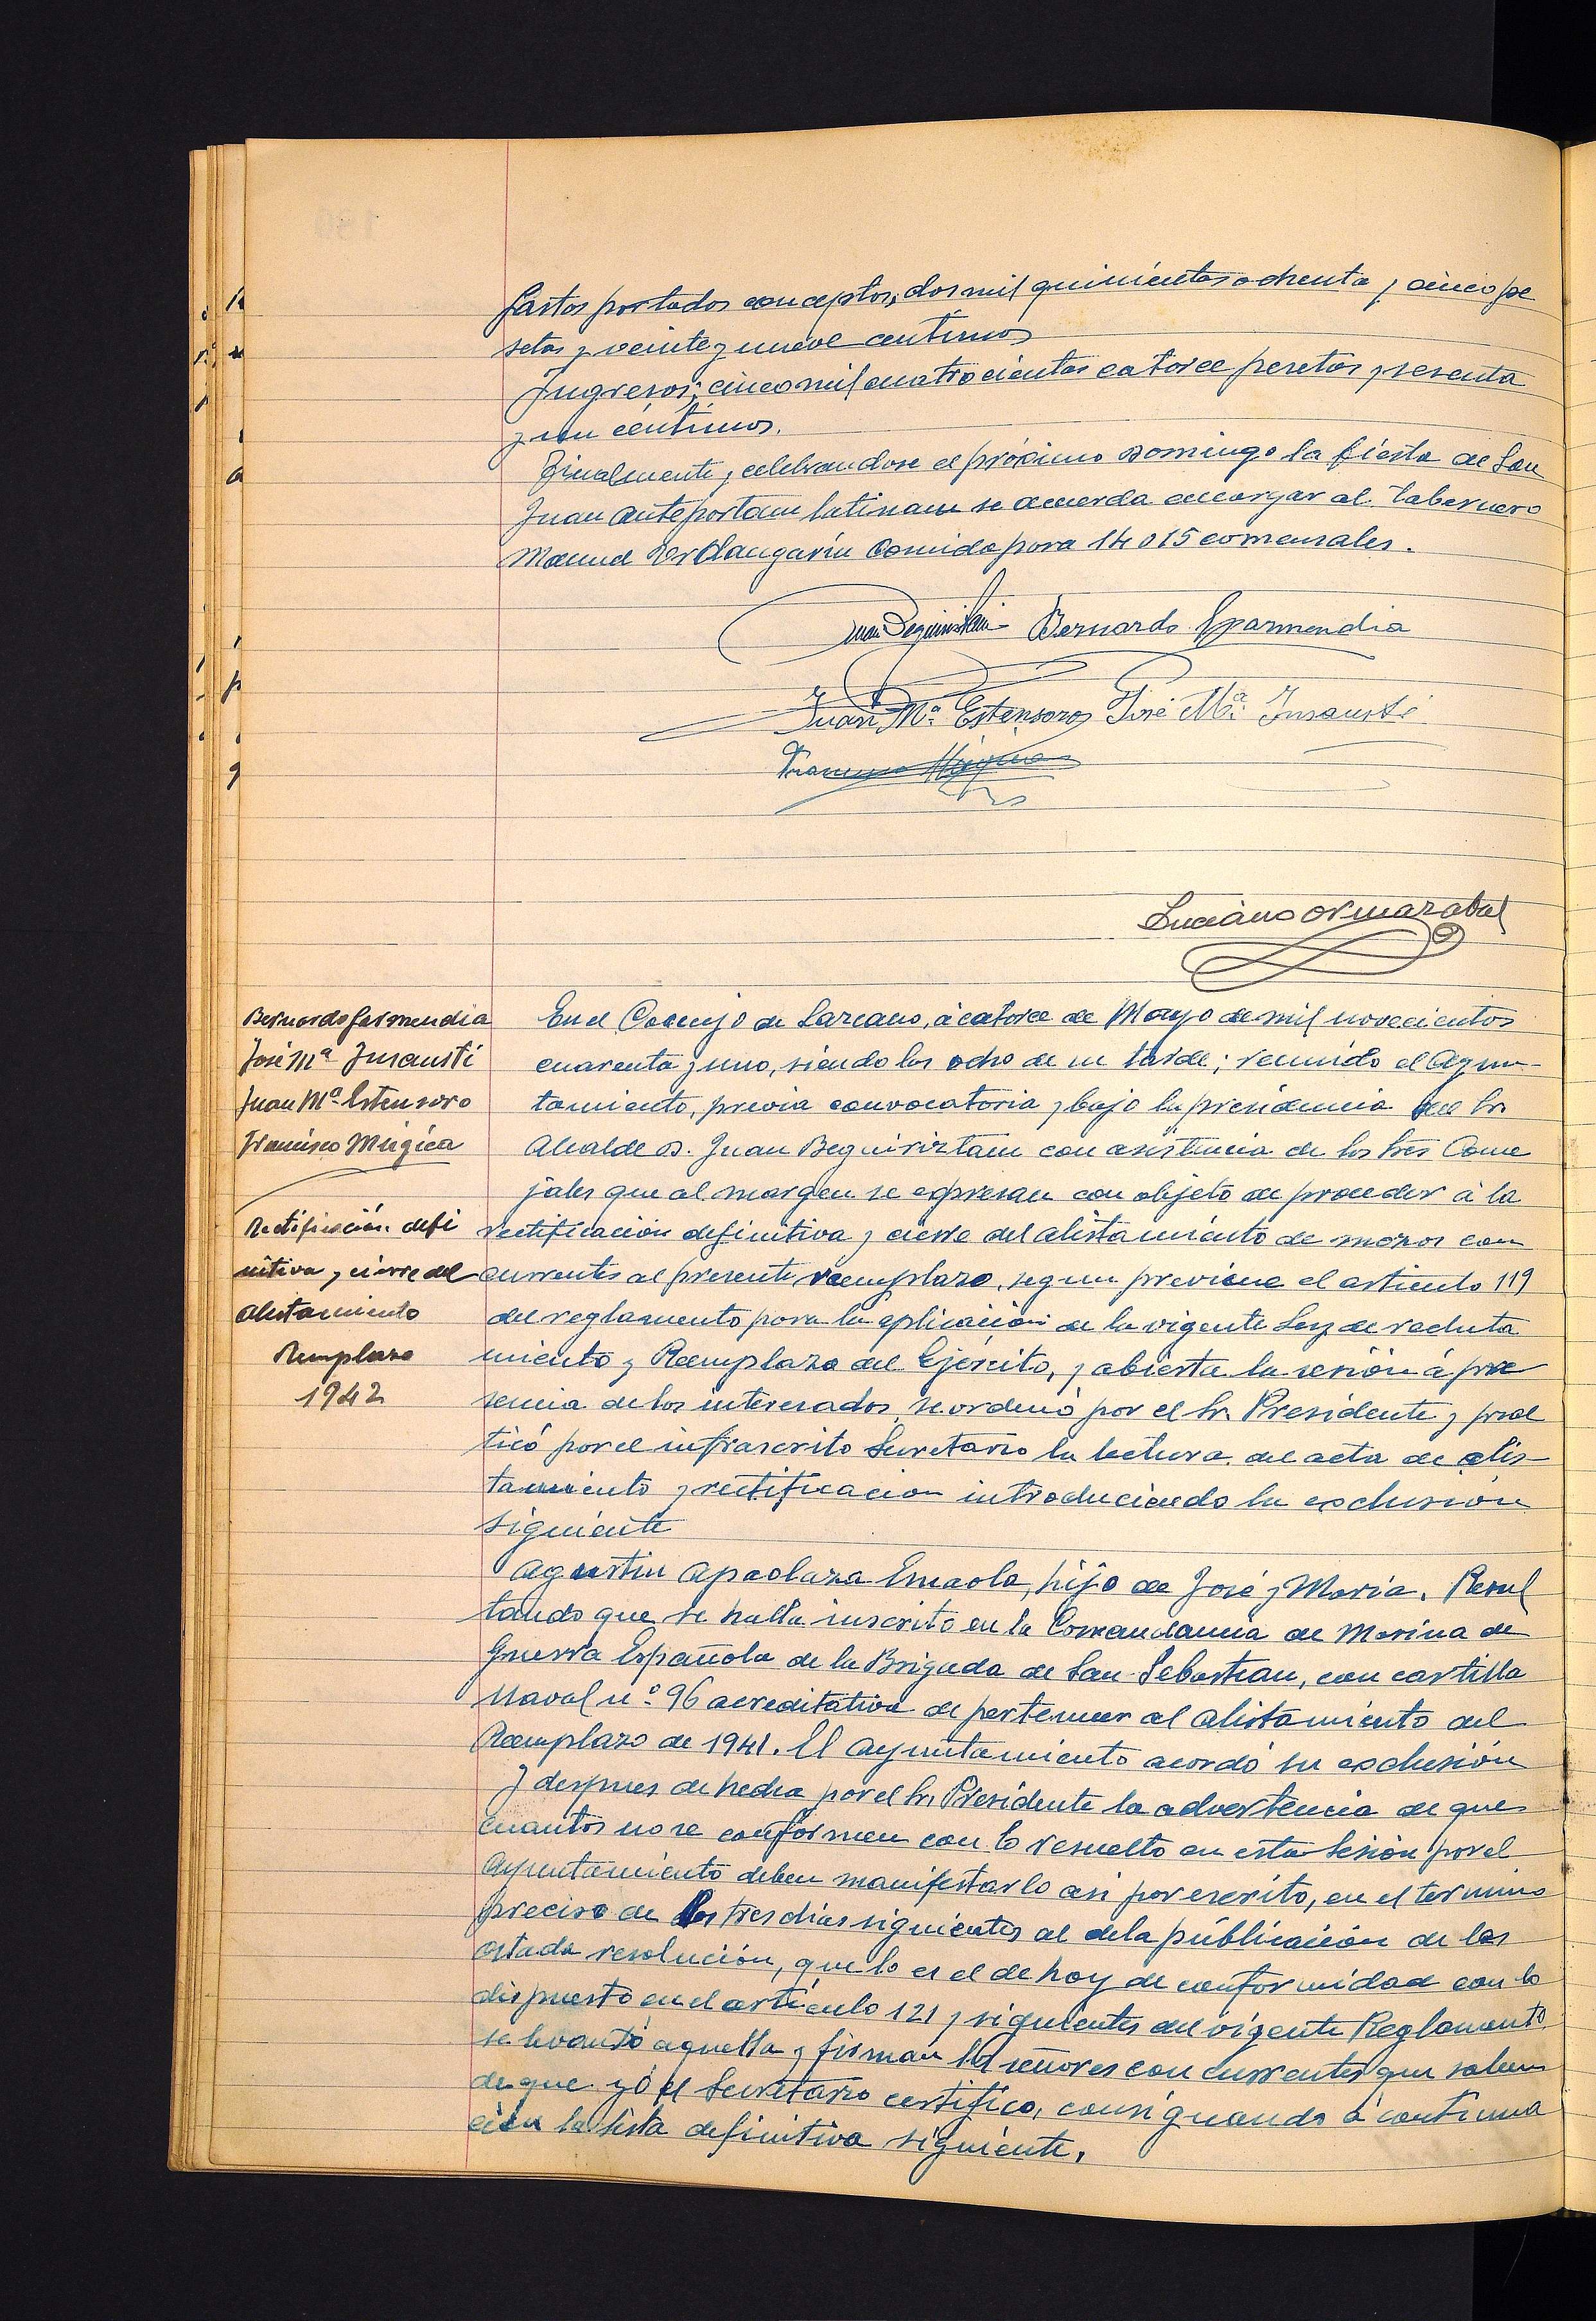 Gastos por todos conceptos, dos mil quinientas ochenta y cinco pe
setas y veinte y nueve centimos
Ingresos; cinco mil cuatrocientas catorce pesetas y sesenta
y un céntimos.
Finalmente, celebrandose el próximo Domingo la fiesta de San
Juan anteportam latinam se acuerda encargar al tabernero
Manuel Urdangarin comida para 14 o 15 comensales.
Juan Beguiristain Bernardo Garmendia
Juan Mª Estensoro José Mª Insausti
Francisco Múgica
Luciano Ormazabal
Bernardo Garmendia
José Mª Insausti
Juan Mª Estensoro
Francisco Múgica
Rectificación defi
nitiva y cierre del
alistamiento
Remplazo
1942
En el Concejo de Lazcano, á catorce de Mayo de mil novecientos
cuarenta y uno, siendo las ocho de su tarde; reunido el Ayun-
tamiento, previa convocatoria y bajo la presidencia del Sr.
Alcalde D. Juan Beguiriztain con asistencia de los tres Conce
jales que al margen se expresan con objeto de proceder á la
rectificación definitiva y cierre del alistamiento de mozos con
currentes al presente reemplazo, segun previene el articulo 119
del reglamento para la aplicación de la vigente Ley de recluta
miento y Reemplazo del Ejército, y abierta la sesión á pre
sencia de los interesados, se ordenó por el Sr. Presidente y prac
ticó por el infrascrito Secretario la lectura del acta de alis-
tamiento y rectificacion introduciendo la exclusión
siguiente
Agustin Apaolaza Imaola, hijo de José y Maria. Resul
tando que se halla inscrito en la Comandancia de Marina de
Guerra Española de la Brigada de San Sebastian, con cartilla
Naval nº 96 acreditativa de pertenecer al alistamiento del
Reemplazo de 1941. El Ayuntamiento acordó su exclusión
Y despues de hecha por el Sr. Presidente la advertencia de que
cuantos no se conformen con lo resuelto en esta Sesión por el
Ayuntamiento deben manifestarlo asi por escrito, en el termino
preciso de los tres dias siguientes al de la publicación de las
citada resolución, que lo es el de hoy de conformidad con lo
dispuesto en el articulo 121 y siguientes del vigente Reglamento
se levantó aquella y firman los señores concurrentes que saben
de que yó el Secretario certifico, consignando á continua
ción la lista definitiva siguiente.